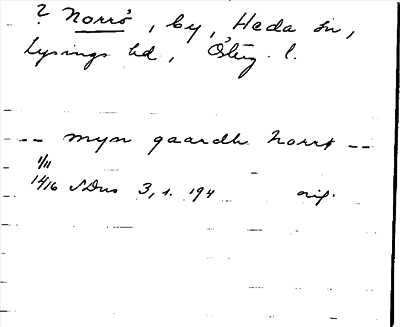 ? Norrö, by, Heda sn,
Lysings hd, Östg. l.
-- myn gaardh Norrö --
1/11
1416 SDns 3, s. 194 orig.